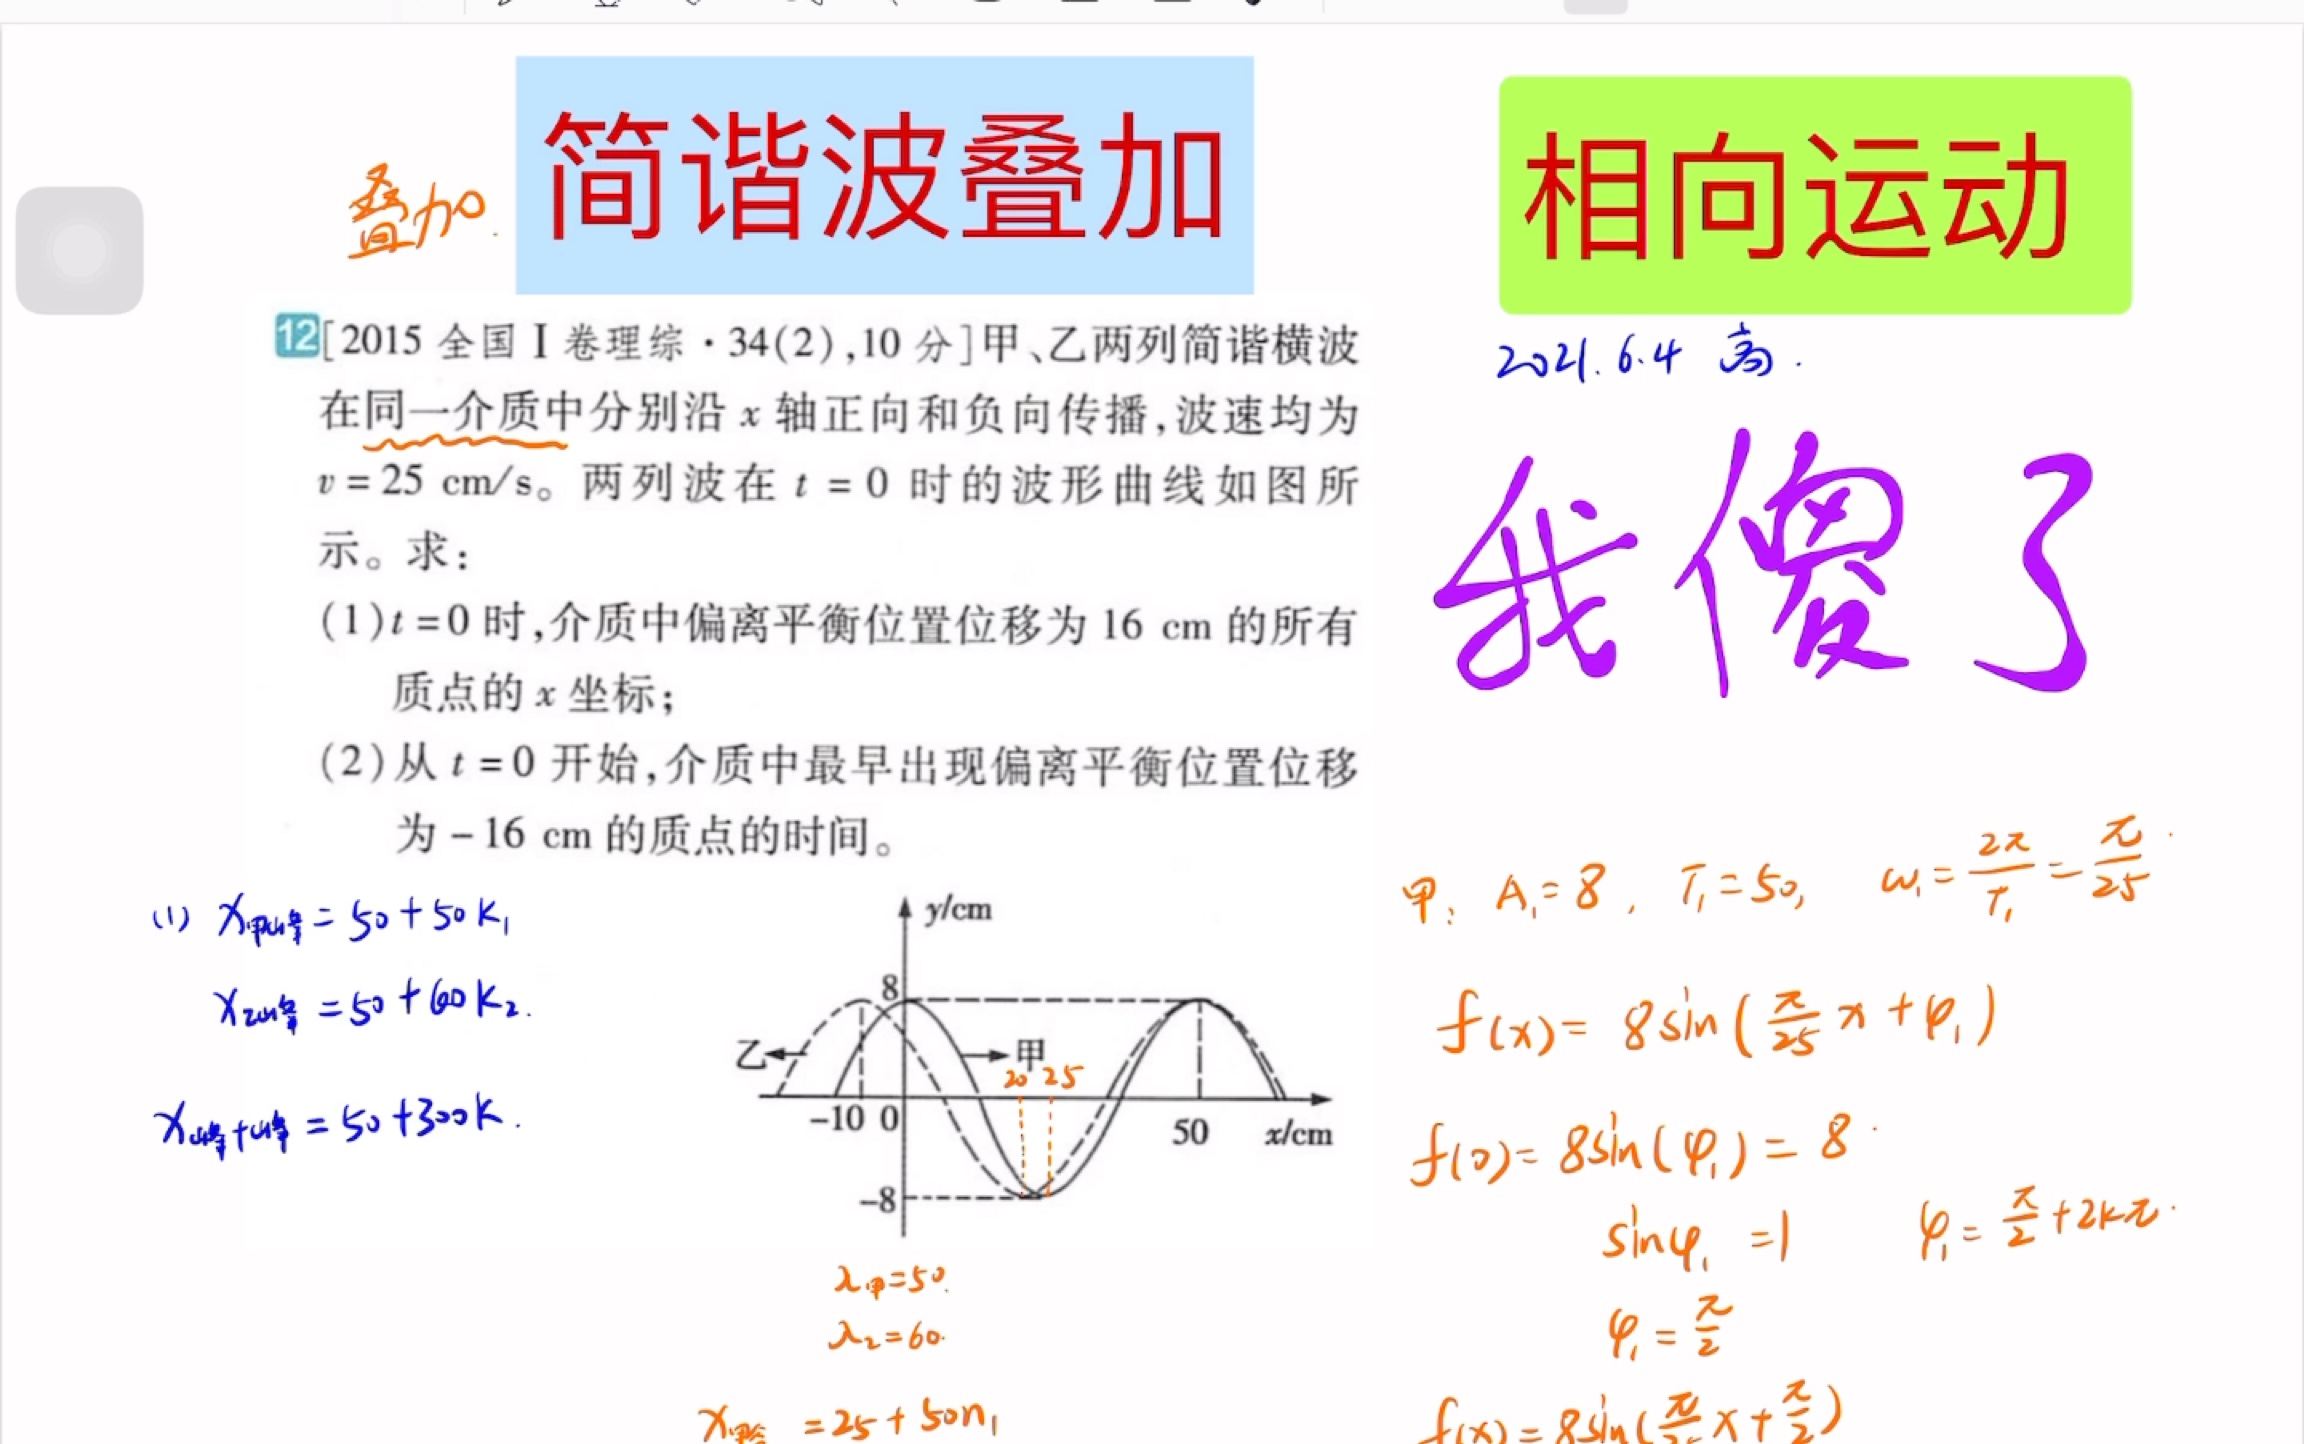 叠加.
简谐波叠加
相向运动
2021.6.4 高.
我傻了
12[2015全国Ⅰ卷理综·34(2),10分]甲、乙两列简谐横波
在同一介质中分别沿x轴正向和负向传播,波速均为
v=25 cm/s。两列波在t=0时的波形曲线如图所
示。求:
(1)t=0时,介质中偏离平衡位置位移为16 cm的所有
质点的x坐标;
(2)从t=0开始,介质中最早出现偏离平衡位置位移
为-16 cm的质点的时间。
(1) x甲峰=50+50k₁
x乙峰=50+60k₂.
x峰+峰=50+300k.
y/cm
8
乙
甲
20 25
-10 0
50
x/cm
-8
λ甲=50.
λ₂=60.
x甲谷=25+50n₁
甲: A₁=8, T₁=50, ω₁=2π/T₁=π/25.
f(x)=8sin(π/25 x+φ₁)
f(0)=8sin(φ₁)=8.
sinφ₁=1 φ₁=π/2+2kπ.
φ₁=π/2
f(x)=8sin(π/25 x+π/2)